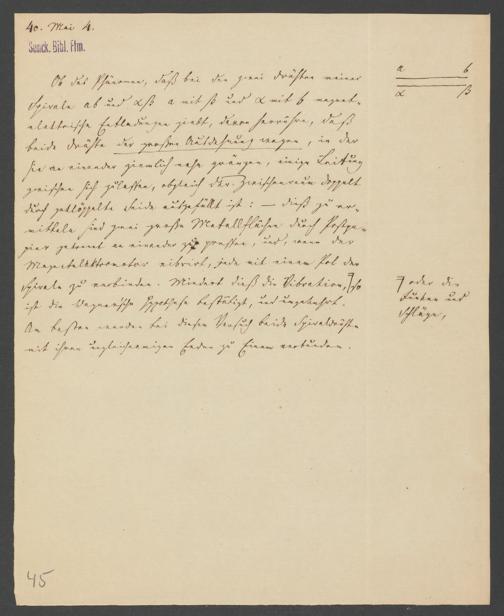 40. Mai 4.
Senck. Bibl. Ffm.
a b
α β
Ob das Phänomen, daß bei den zwei Drähten meiner
Spirale ab und αβ a mit β und α mit b magnet-
elektrische Entladungen giebt, davon herrühre, daß
beide Drähte der großen Ausdehnung wegen, in der
sie an einander ziemlich nahe gränzen, einige Leitung
zwischen sich zulassen, obgleich der Zwischenraum doppelt
durch geklöppelte Seide ausgefüllt ist: — dieß zu er-
mitteln sind zwei große Metallflächen durch Postpa-
pier getrennt an einander zu pressen, und, wenn der
Magnetelektromotor vibrirt, jede mit einem Pol der
Spirale zu verbinden. Mindert dieß die Vibration, so
oder die
Funken und
Schläge,
ist die Wagnersche Hypothese bestätigt, und umgekehrt.
Am besten werden bei diesem Versuch beide Spiraldrähte
mit ihren ungleichnamigen Enden zu Einem verbunden.
45